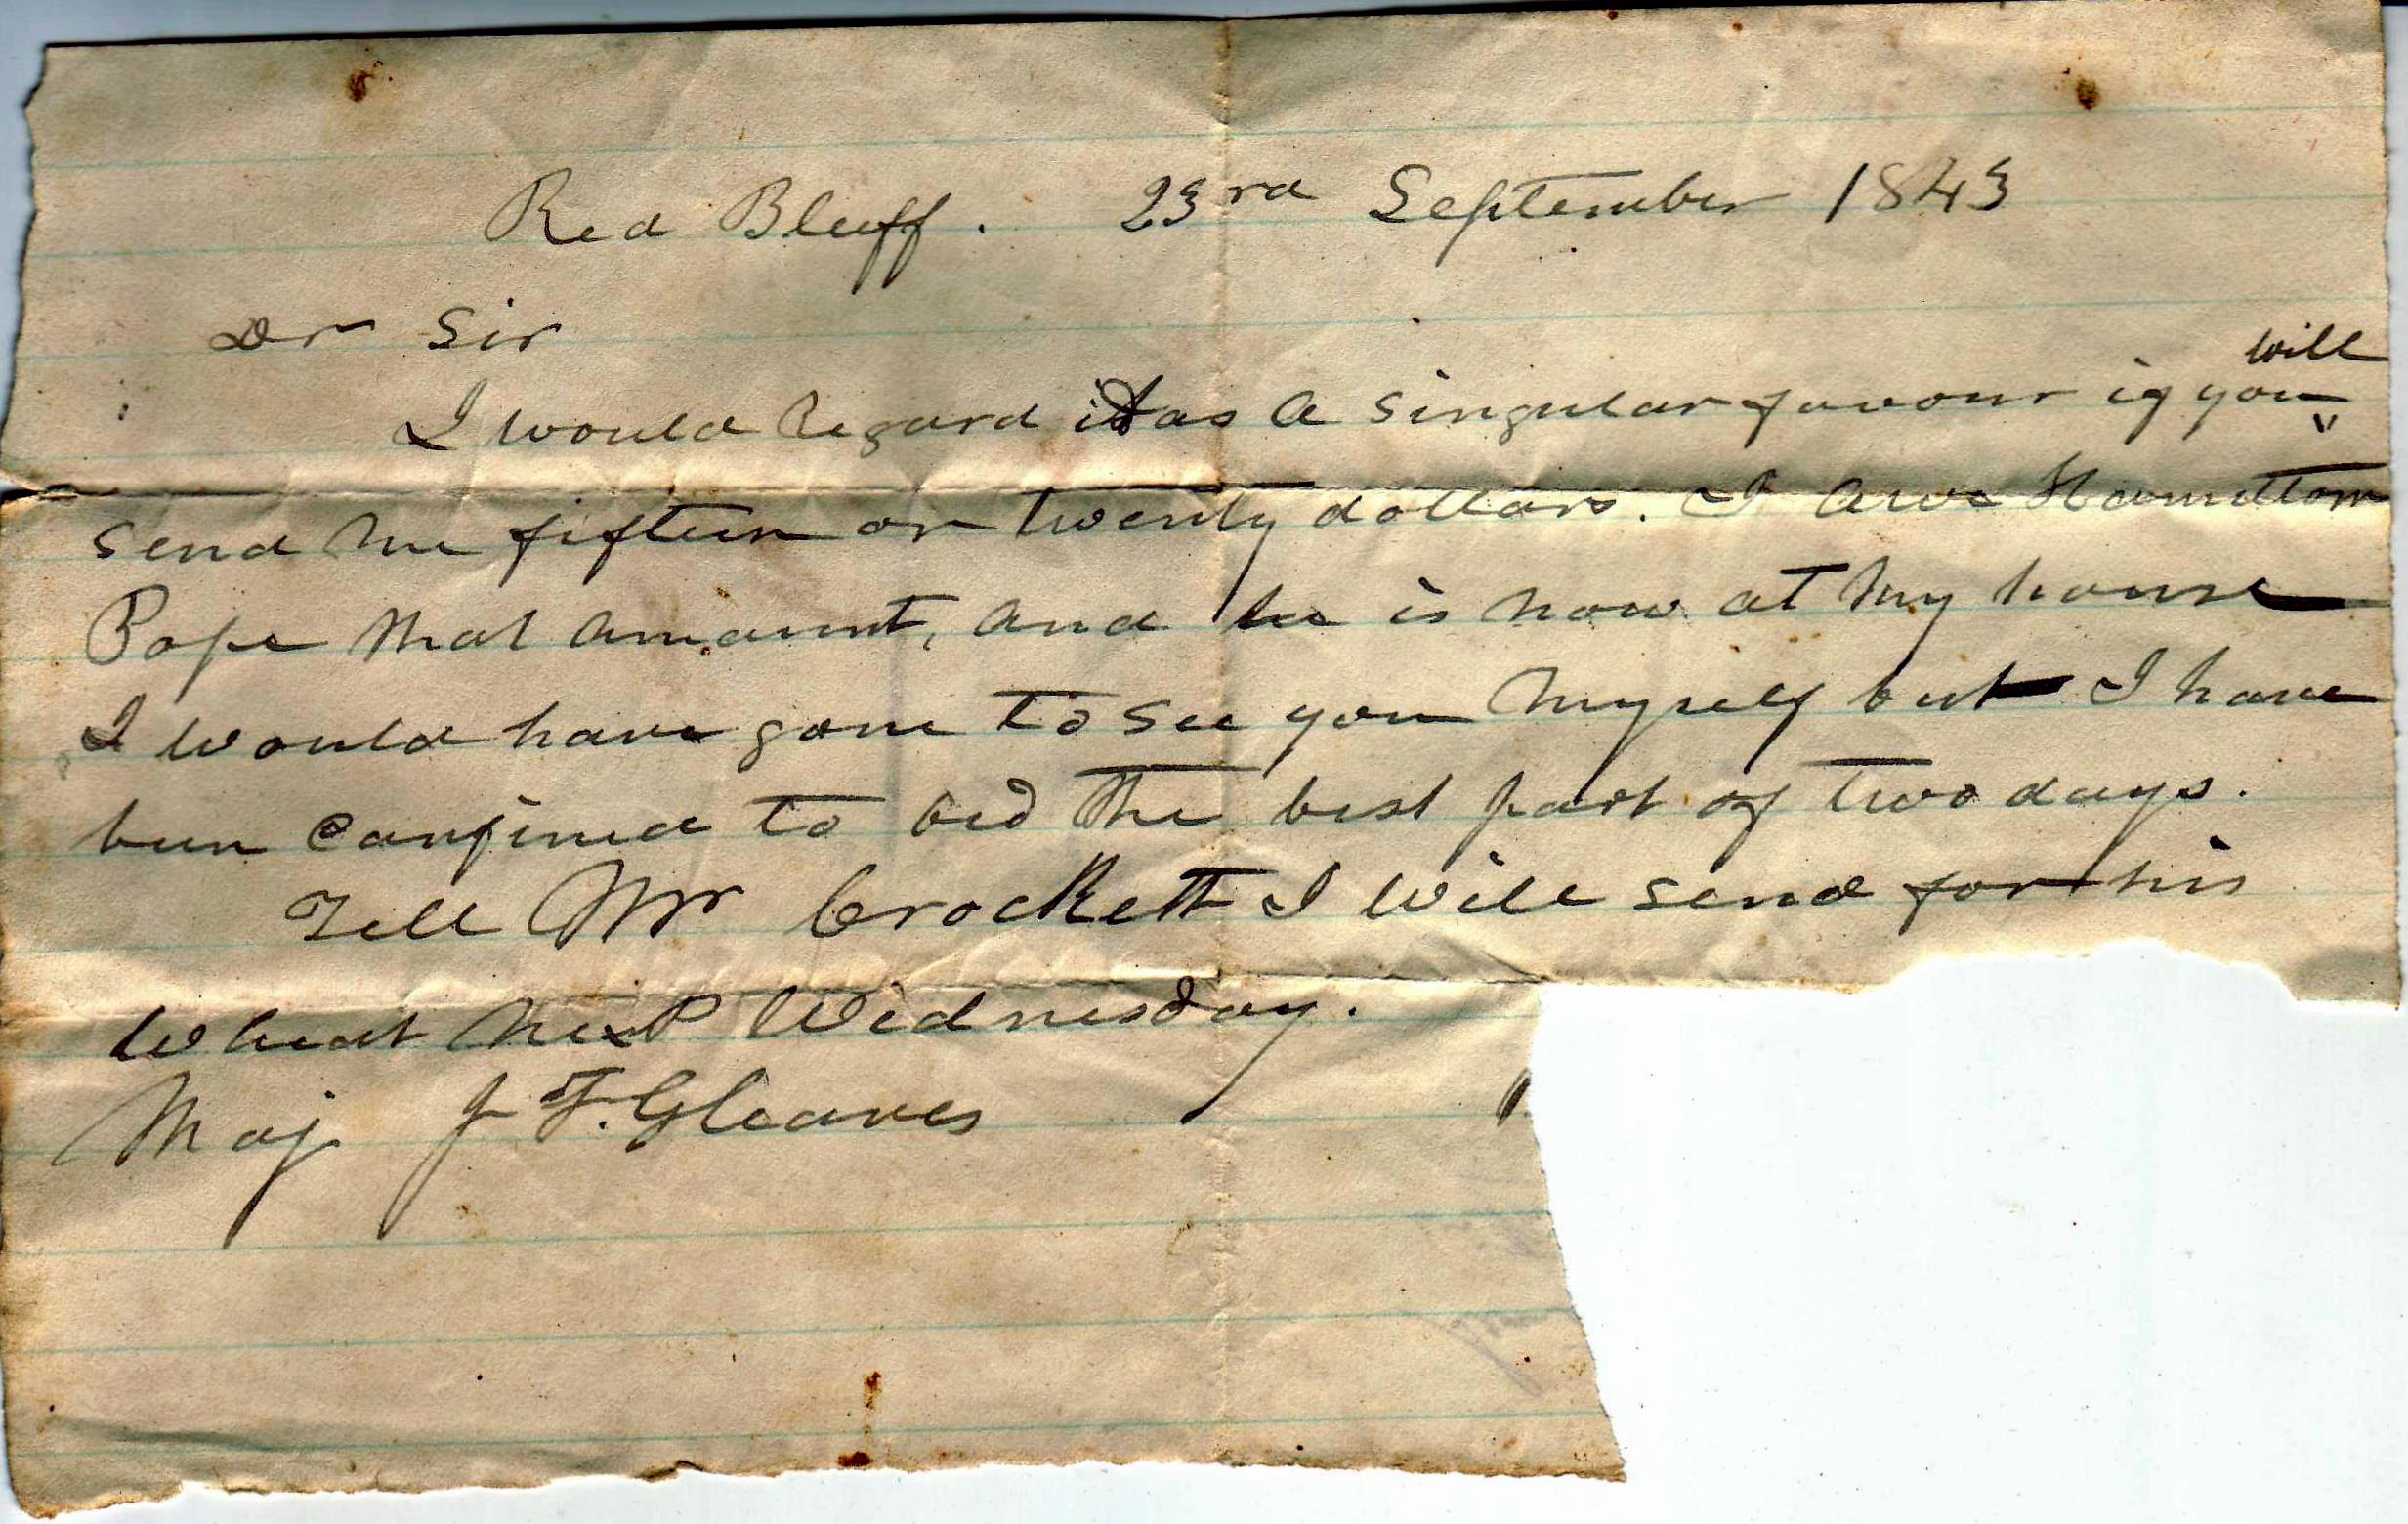 Red Bluff. 23rd September 1843
Dr Sir
will
I would regard it as a singular favour if you
send me fifteen or twenty dollars. I owe Hamilton
Pope that amount, and he is now at my house
I would have gone to see you myself but I have
been confined to bed the best part of two days.
Tell Mr Crockett I will send for his
wheat next Wednesday.
Maj J T. Gleaves